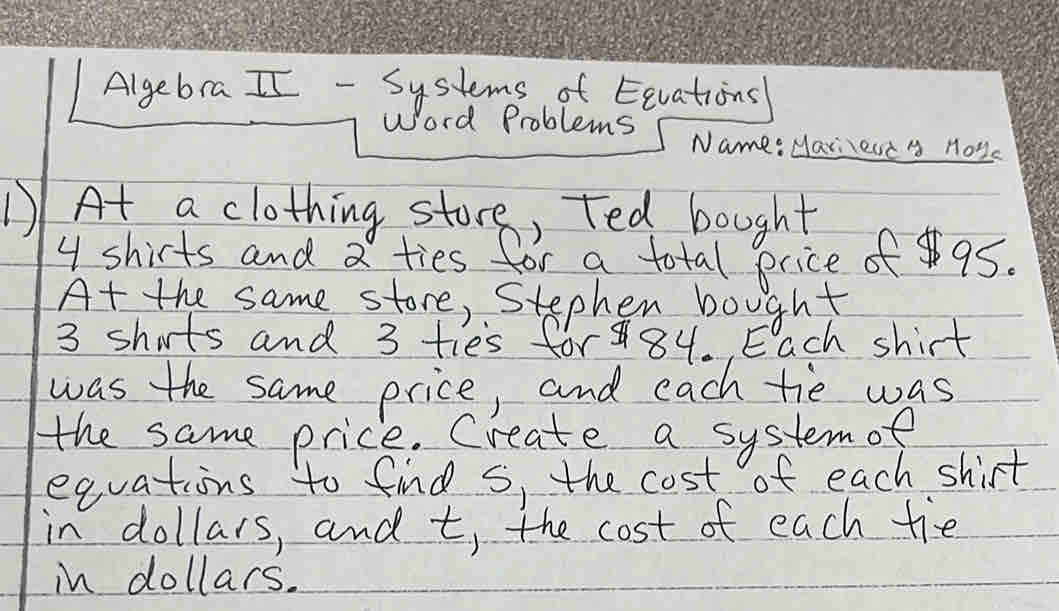 Algebra II - Systems of Equations
Word Problems
Name:
1) At a clothing store, Ted bought
4 shirts and 2 ties for a total price of $95.
At the same store, Stephen bought
3 shirts and 3 ties for $84. Each shirt
was the same price, and each tie was
the same price. Create a system of
equations to find s, the cost of each shirt
in dollars, and t, the cost of each tie
in dollars.